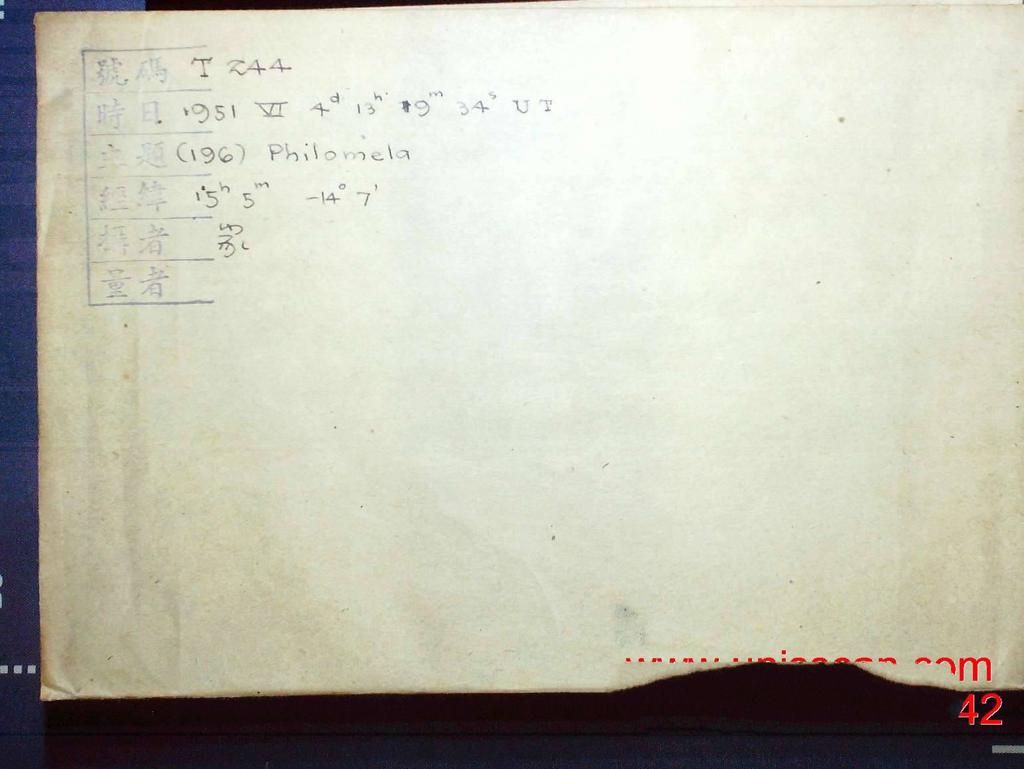 號碼 T 244
時日 1951 VI 4d 13h 19m 34s UT
主題 (196) Philomela
經緯 15h 5m -14° 7'
攝者
量者
42